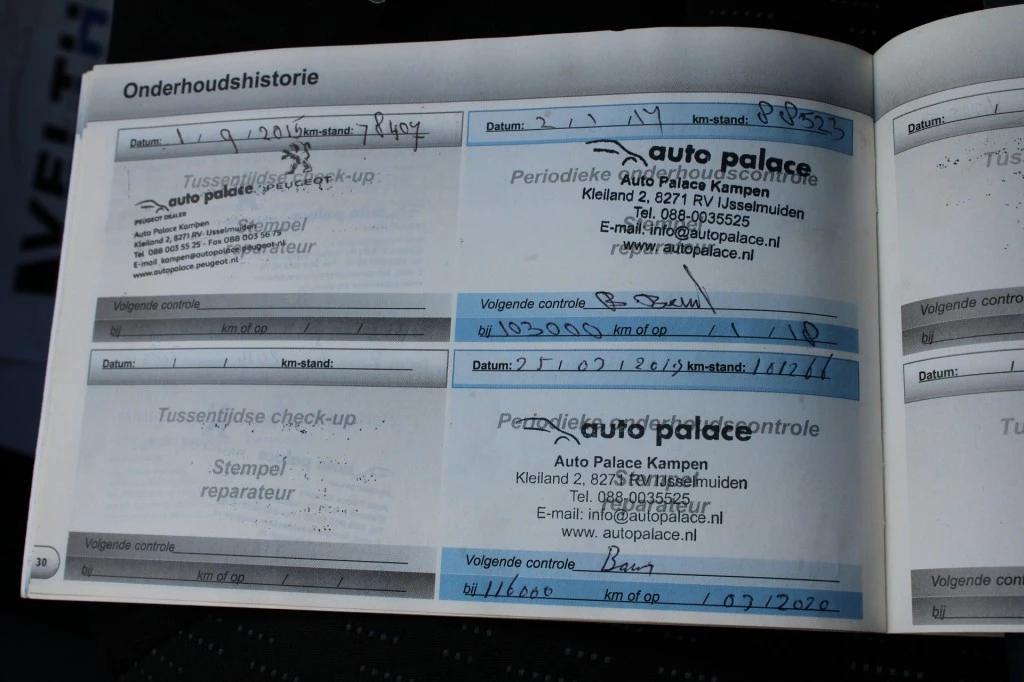 Onderhoudshistorie
Datum: 1 / 9 / 2015 km-stand: 78407
Tussentijdse check-up
auto palace PEUGEOT
PEUGEOT DEALER
Auto Palace Kampen
Kleiland 2, 8271 RV IJsselmuiden
Tel 088 003 55 25 - Fax 088 003 56 79
E-mail kampen@autopalace.peugeot.nl
www.autopalace.peugeot.nl
Stempel
reparateur
Volgende controle
bij km of op / /
Datum: 2 / 1 / 17 km-stand: 88523
Periodieke onderhoudscontrole
auto palace
Auto Palace Kampen
Kleiland 2, 8271 RV IJsselmuiden
Tel. 088-0035525
E-mail: info@autopalace.nl
www. autopalace.nl
Stempel
reparateur
Volgende controle
bij 103000 km of op / 1 / 18
Datum: / / km-stand:
Tussentijdse check-up
Stempel
reparateur
Volgende controle
bij km of op / /
Datum: 25 / 03 / 2019 km-stand: 101266
Periodieke onderhoudscontrole
auto palace
Auto Palace Kampen
Kleiland 2, 8271 RV IJsselmuiden
Tel. 088-0035525
E-mail: info@autopalace.nl
www. autopalace.nl
Stempel
reparateur
Volgende controle
bij 116000 km of op / 03 / 2020
30
Datum: /
Volgende contro
bij
Datum: /
Volgende contro
bij